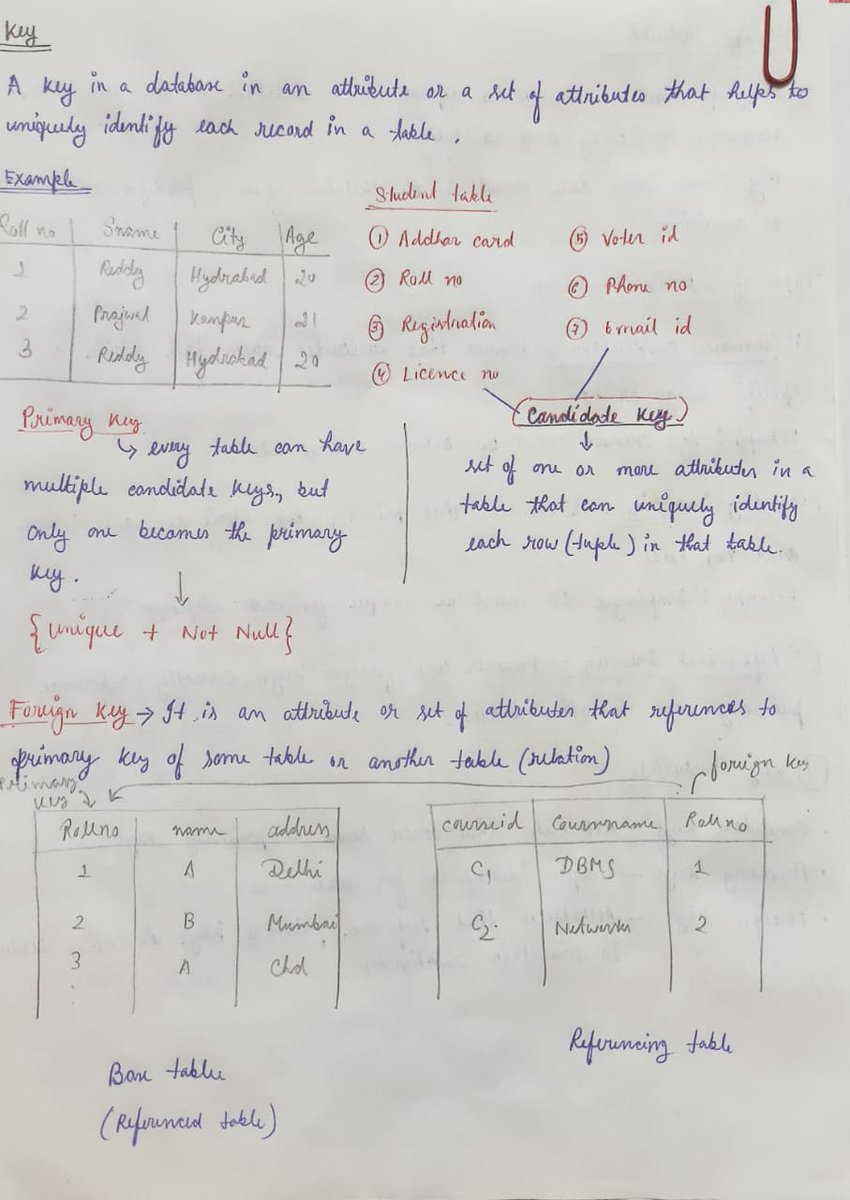 Key
A Key in a database in an attribute or a set of attributes that helps to
uniquely identify each record in a table .
Example
Roll no Sname City Age
1 Reddy Hydrabad 20
2 Prajwal Kanpur 21
3 Reddy Hydrabad 20
Student table
① Addhar card
② Roll no
③ Registration
④ Licence no
⑤ Voter id
⑥ Phone no
⑦ Email id
Candidate Key
↓
set of one or more attributes in a
table that can uniquely identify
each row (tuple) in that table.
Primary Key
↳ every table can have
multiple candidate keys, but
only one becomes the primary
key.
↓
{Unique + Not Null}
Foreign Key → It is an attribute or set of attributes that references to
primary key of some table or another table (relation)
Primary
key
Rollno name address
1 A Delhi
2 B Mumbai
3 A Chd
Base table
(Referenced table)
foreign key
courseid Coursename Rollno
C1 DBMS 1
C2. Networks 2
Referencing table